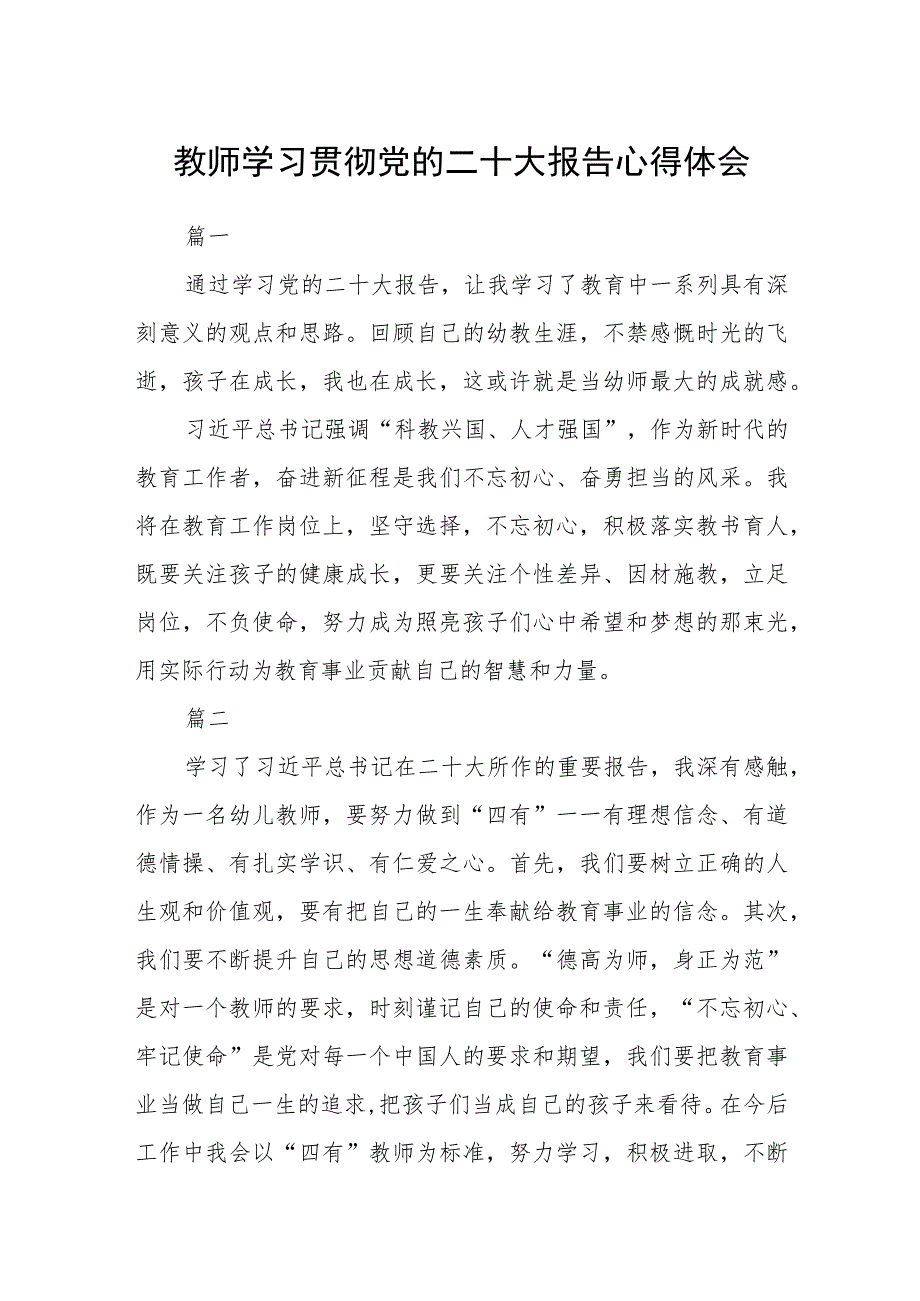 教师学习贯彻党的二十大报告心得体会
篇一
通过学习党的二十大报告，让我学习了教育中一系列具有深
刻意义的观点和思路。回顾自己的幼教生涯，不禁感慨时光的飞
逝，孩子在成长，我也在成长，这或许就是当幼师最大的成就感。
习近平总书记强调“科教兴国、人才强国”，作为新时代的
教育工作者，奋进新征程是我们不忘初心、奋勇担当的风采。我
将在教育工作岗位上，坚守选择，不忘初心，积极落实教书育人，
既要关注孩子的健康成长，更要关注个性差异、因材施教，立足
岗位，不负使命，努力成为照亮孩子们心中希望和梦想的那束光，
用实际行动为教育事业贡献自己的智慧和力量。
篇二
学习了习近平总书记在二十大所作的重要报告，我深有感触，
作为一名幼儿教师，要努力做到“四有”一一有理想信念、有道
德情操、有扎实学识、有仁爱之心。首先，我们要树立正确的人
生观和价值观，要有把自己的一生奉献给教育事业的信念。其次，
我们要不断提升自己的思想道德素质。“德高为师，身正为范”
是对一个教师的要求，时刻谨记自己的使命和责任，“不忘初心、
牢记使命”是党对每一个中国人的要求和期望，我们要把教育事
业当做自己一生的追求,把孩子们当成自己的孩子来看待。在今后
工作中我会以“四有”教师为标准，努力学习，积极进取，不断